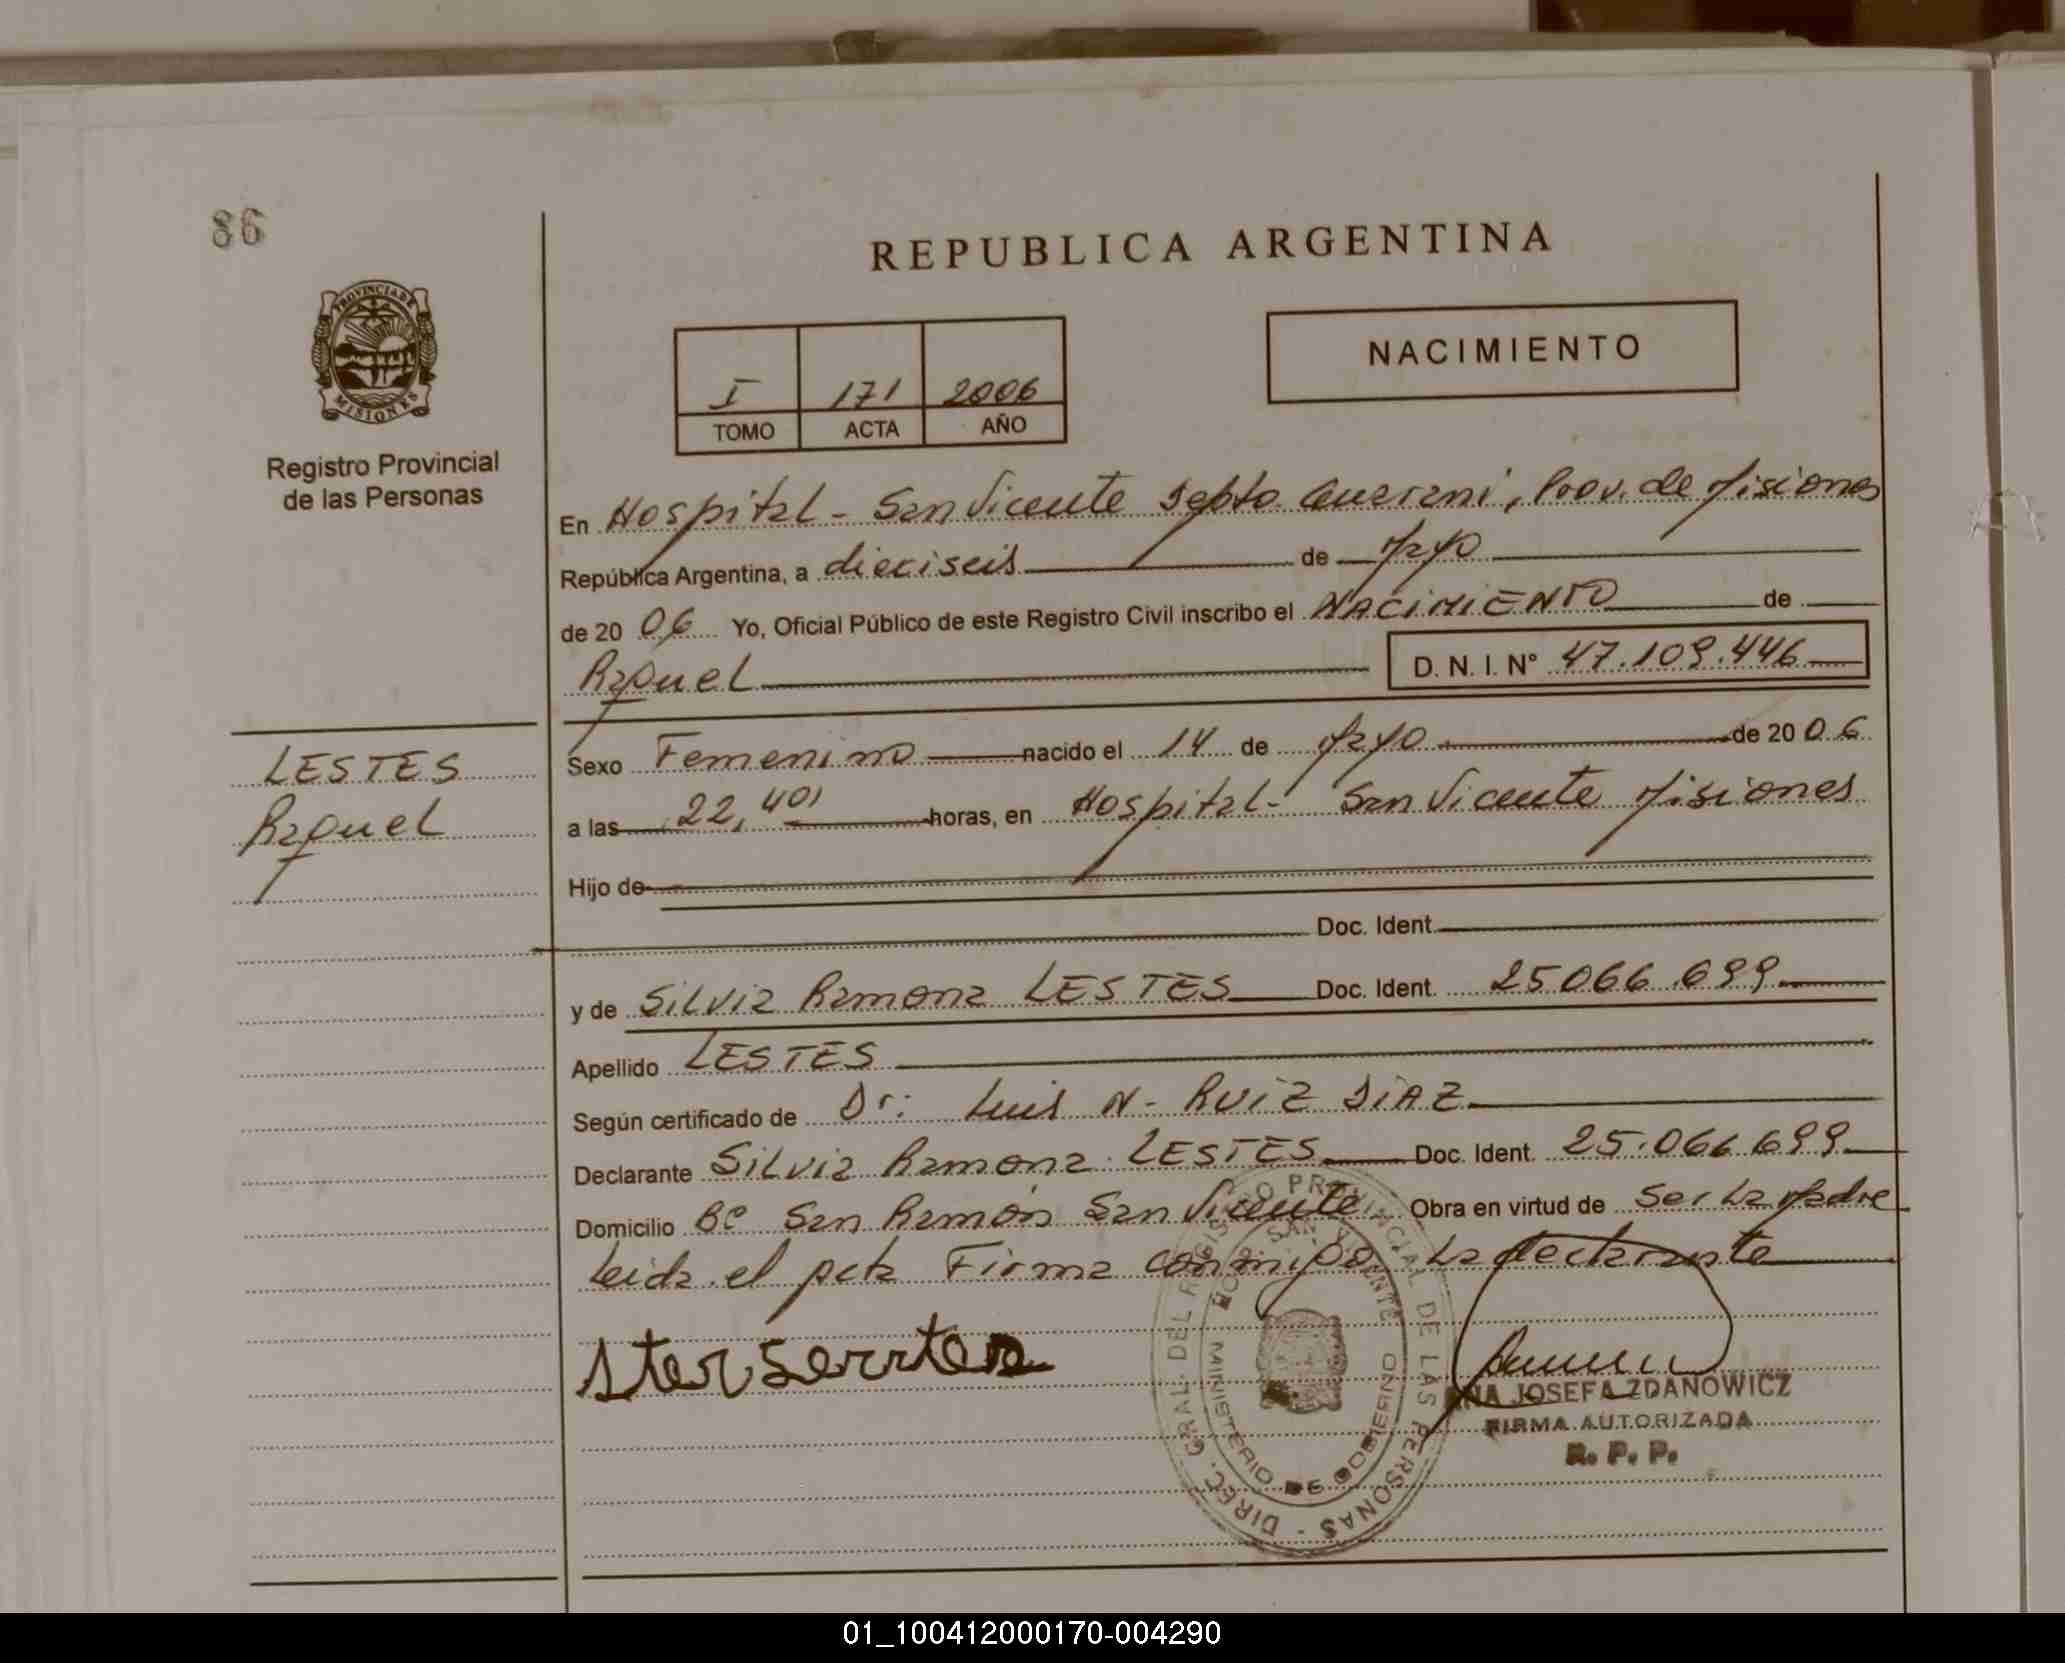 86
REPUBLICA ARGENTINA
PROVINCIA DE
MISIONES
Registro Provincial
de las Personas
I 171 2006
TOMO ACTA AÑO
NACIMIENTO
En Hospital - San Vicente Depto. Guarani, Prov. de Misiones
República Argentina, a dieciseis de Mayo
de 20 06 Yo, Oficial Público de este Registro Civil inscribo el NACIMIENTO de
Raquel D. N. I. Nº 47.109.446
LESTES
Raquel
Sexo Femenino nacido el 14 de Mayo de 20 06
a las 22,40 horas, en Hospital - San Vicente Misiones
Hijo de
Doc. Ident.
y de Silvia Ramona LESTES Doc. Ident. 25.066.699
Apellido LESTES
Según certificado de Dr: Luis N. RUIZ DIAZ
Declarante Silvia Ramona LESTES Doc. Ident. 25.066.699
Domicilio Bº San Ramón San Vicente Obra en virtud de ser La Madre
Leida el acta Firma conmigo La declarante
DIREC. GRAL. DEL REGISTRO PROVINCIAL DE LAS PERSONAS -
SAN VICENTE
MINISTERIO DE GOBIERNO
ANA JOSEFA ZDANOWICZ
FIRMA AUTORIZADA
R. P. P.
01_100412000170-004290